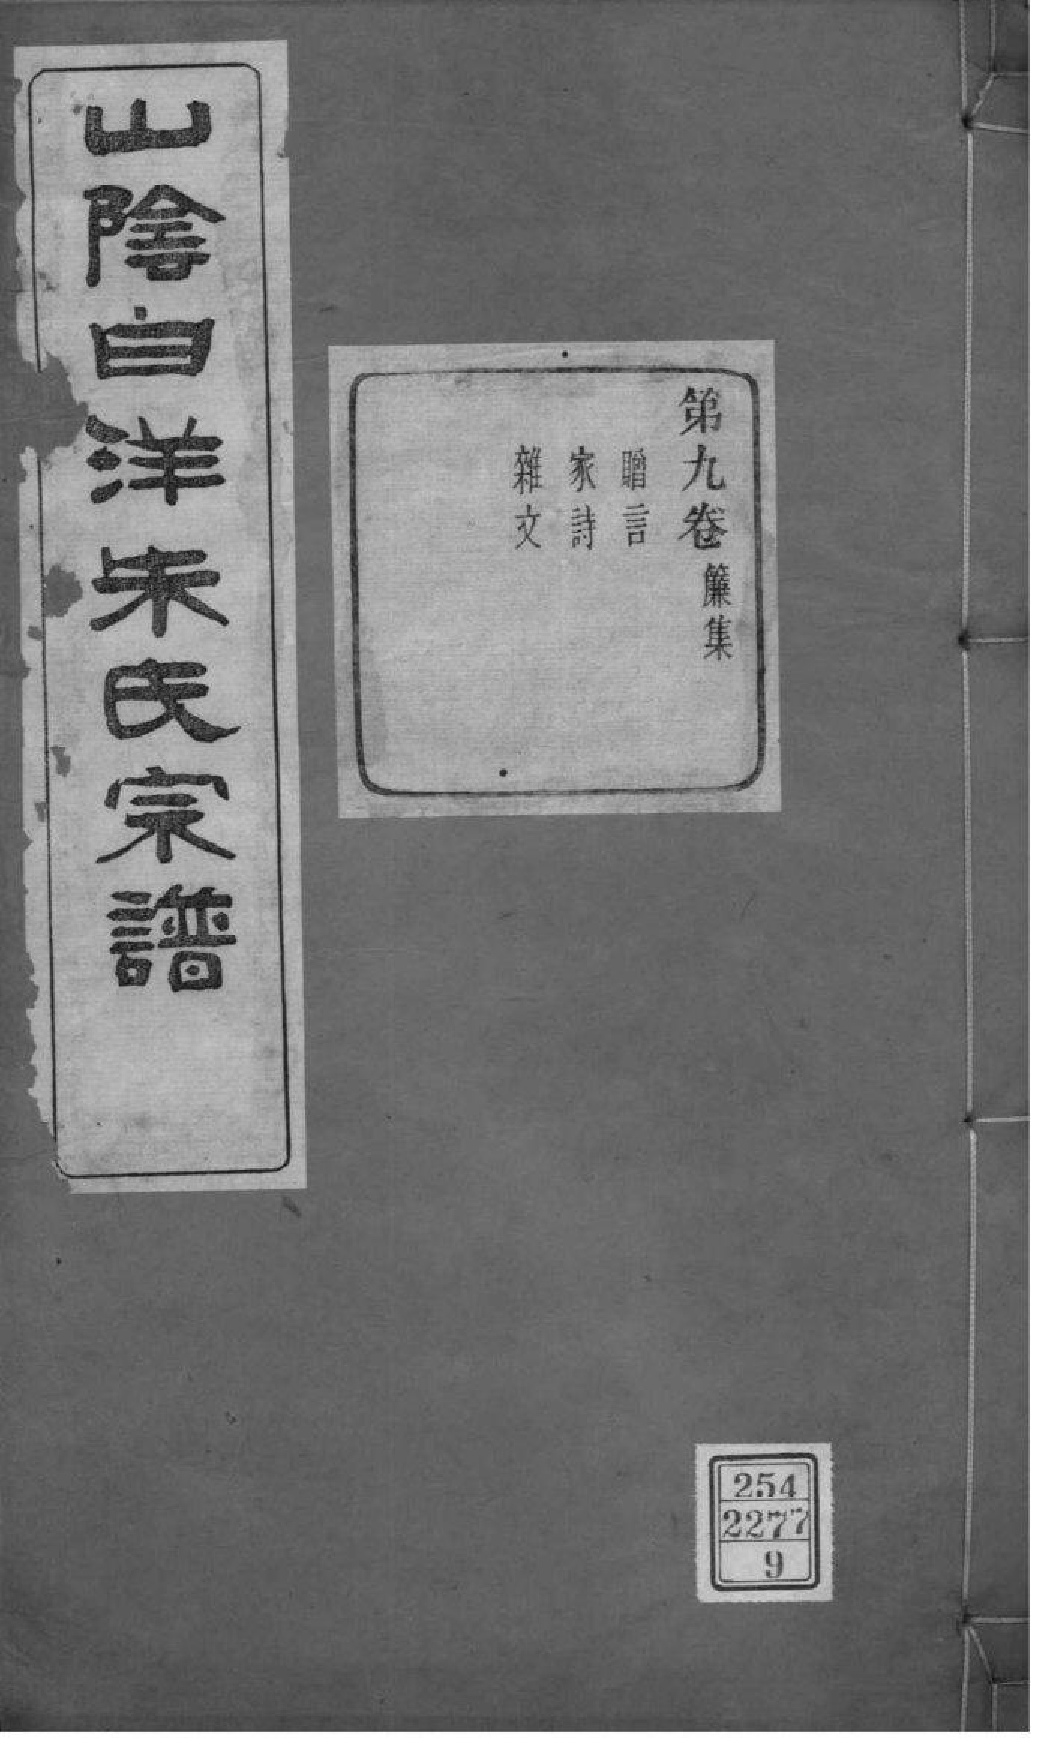 山陰白洋朱氏宗譜
第九卷 簾集
贈言
家詩
雜文
254
2277
9